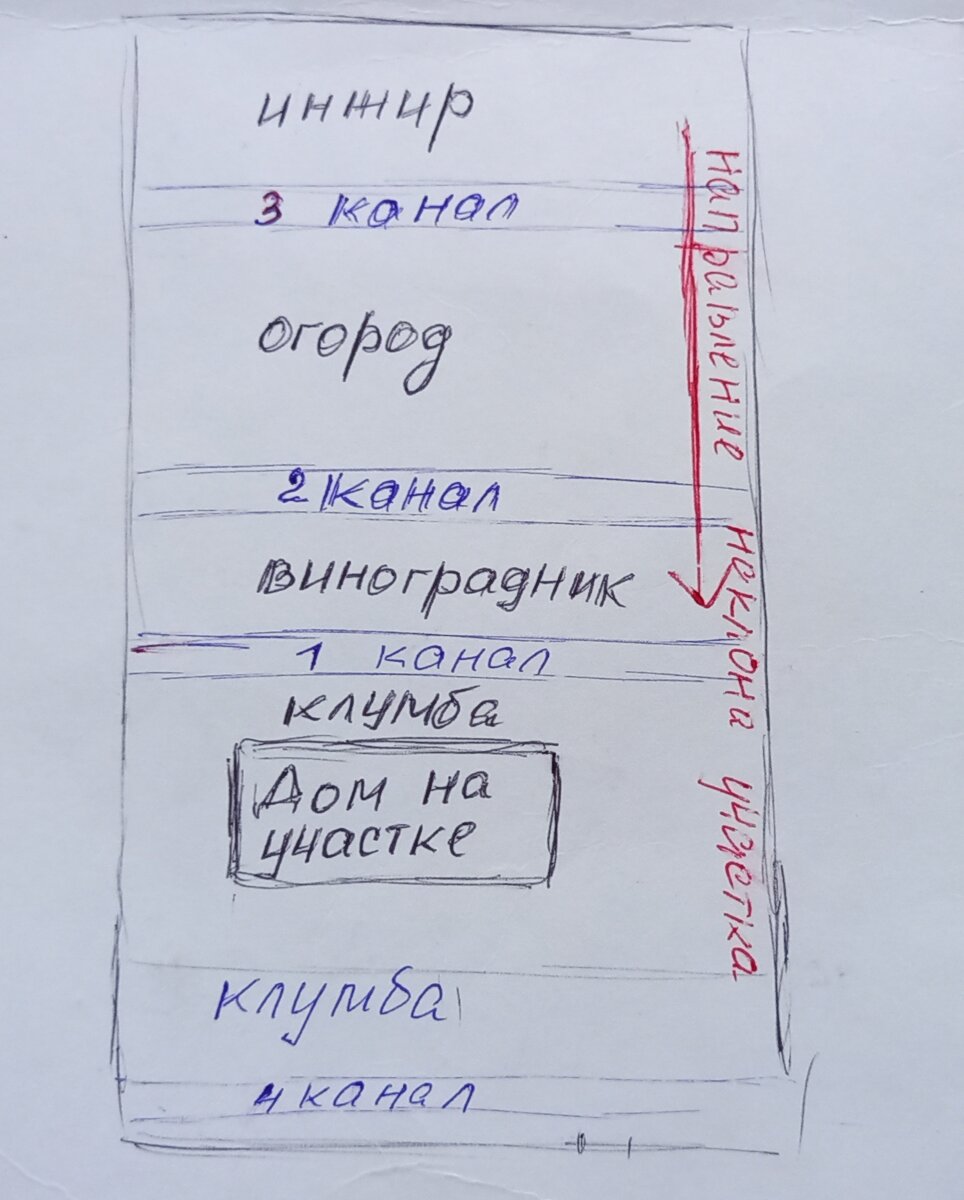 инжир
3 канал
огород
2 канал
виноградник
1 канал
клумба
Дом на
участке
клумба
4 канал
направление неклона участка